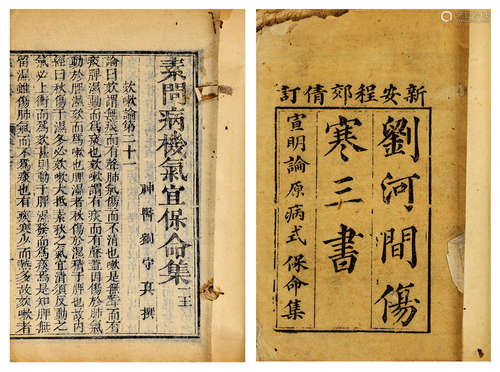 素問病機氣宜保命集
神醫劉守真撰
欬嗽論第二十一
論曰欬謂無痰而有聲肺氣傷而不清也嗽是無聲而有
痰脾濕動而為痰也欬嗽謂有痰而有聲蓋因傷於肺氣
動於脾濕欬而為嗽也脾濕者秋傷於濕積于脾也故內
經曰秋傷于濕冬必欬嗽大抵素秋之氣宜清須反動之
氣必上衝而為欬甚則動于脾濕發而為痰焉是知脾無
留濕雖傷肺氣而不為痰也有痰寒少而熱多故欬嗽者
新安程郊倩訂
劉河間傷
寒三書
宣明論 原病式 保命集